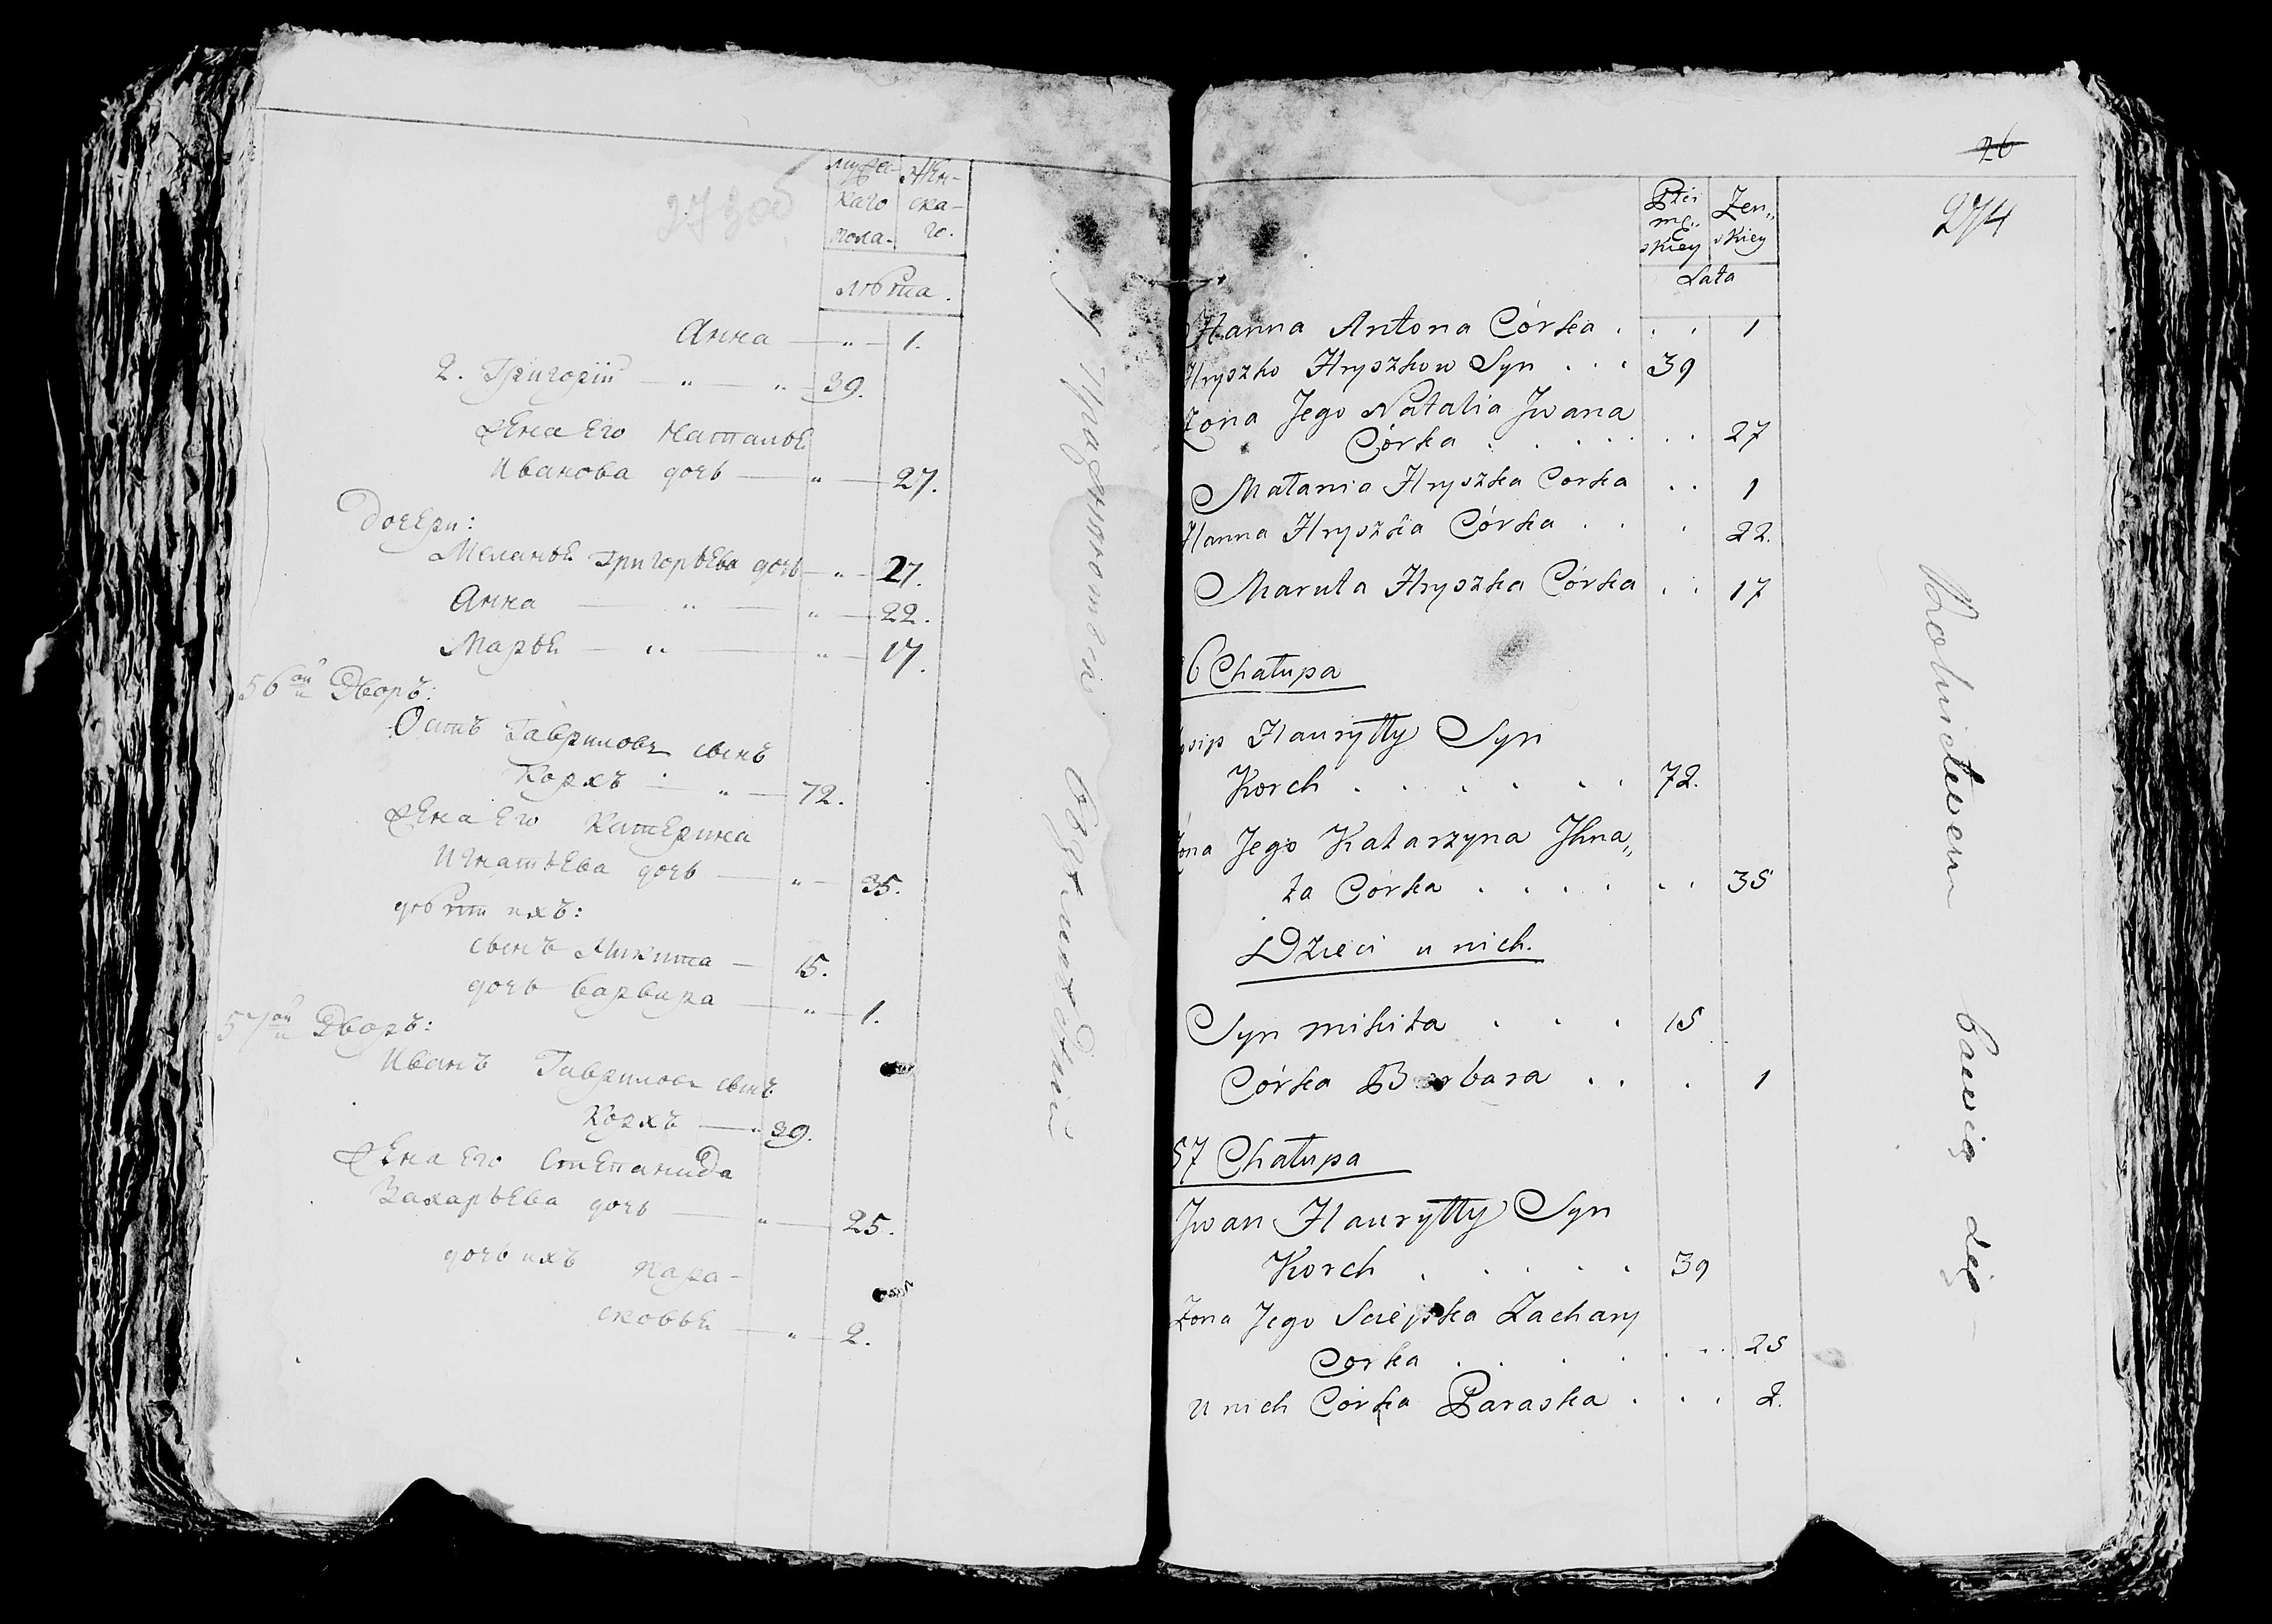 273 об
мужес-
каго
пола.
жен-
ска-
го.
лѣта.
Анна — „ — 1.
2. Григорій — „ — „ — 39.
жена Его Наталья
Иванова дочь — „ — 27.
Дочери:
Меланья Григорьева дочь — „ — 27.
Анна — „ — „ — 22.
Марья — „ — „ — 17.
56ой Дворъ:
Осипъ Гавриловъ сынъ
Коржъ — „ — 72.
жена Его Катерина
Игнатьева дочь — „ — 35.
дѣти ихъ:
сынъ Микита — 15.
дочь Варвара — „ — 1.
57ой Дворъ:
Иванъ Гавриловъ сынъ
Коржъ — 39.
жена Его Степанида
Захарьева дочь — „ — 25.
дочь ихъ Пара-
сковья — „ — 2.
26
274
Płci
mę.
skiey
Zen„
skiey
Lata
Hanna Antona Córka . . . 1
Hryszko Hryszkow Syn . . . 39
Zona Jego Natalia Jwana
Córka . . . . . . 27
Matania Hryszka Corka . . 1
Hanna Hryszka Córka . . . 22.
Maruta Hryszka Córka . . 17
6 Chałupa
osip Hauryłły Syn
Korch . . . . . . 72.
Zona Jego Katarzyna Jhna„
ta Córka . . . . . . 35
Dzieci u nich.
Syn mikita . . . 15
Córka Barbara . . . 1
57 Chałupa
Jwan Hauryłły Syn
Korch . . . . . 39
Zona Jego Sciepka Zachary
Corka . . . . . . . 25
u nich Córka Paraska . . . 2.
Rolnictwem bawią się